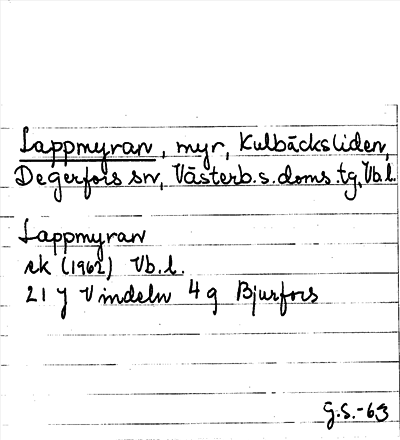 Lappmyran, myr, Kulbäcksliden,
Degerfors sn, Västerb.s.doms.tg, Vb.l.
Lappmyran
ek (1962) Vb.l.
21 J Vindeln 4 g Bjurfors
G.S.-63